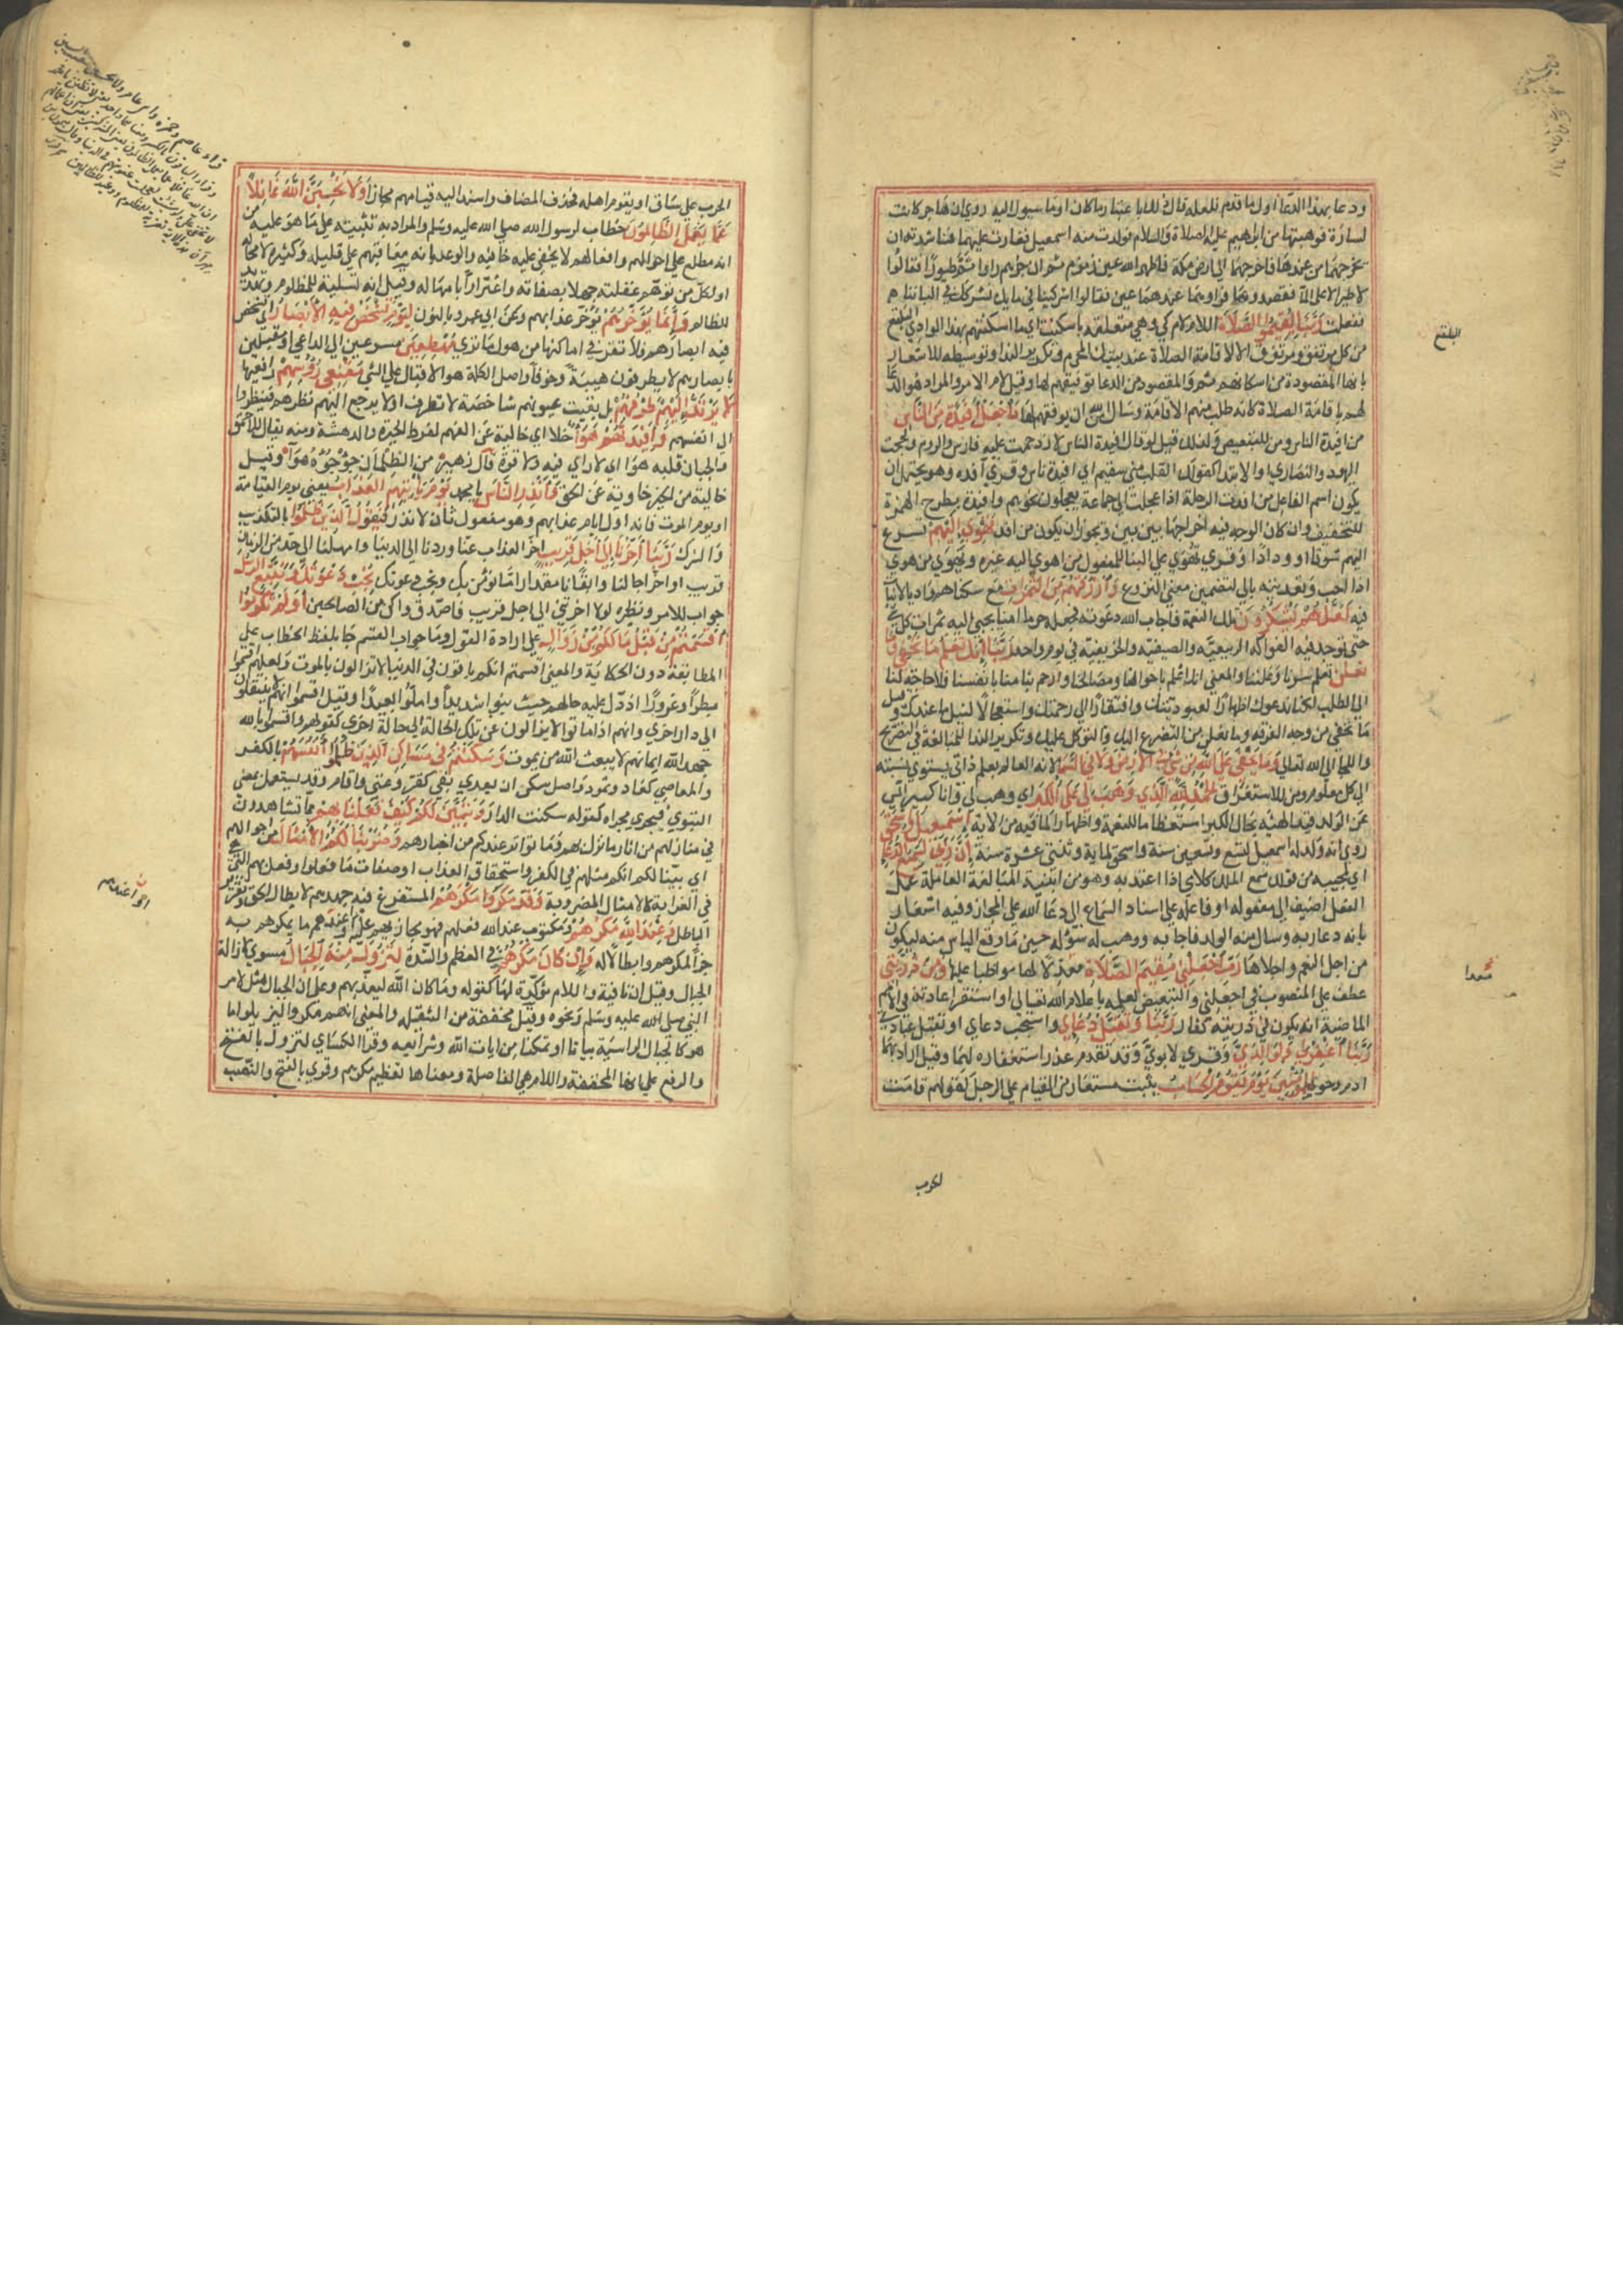 ودعا بهذا الدعا اول ما قدم فلعله قال ذلك باعتبار ما كان او ما سيول اليه روي ان هاجر كانت
لسارة فوهبتها من ابراهيم عليه الصلاة والسلام فولدت منه اسمعيل فغارت عليهما فناشدته ان
يخرجهما من عندها فاخرجهما الى ارض مكة فاظهر الله عين زمزم ثم ان جرهم راوا ثم طيورا فقالوا
لا طير الا على الما فقصدوه فراوهما وعندهما عين فقالوا اشركينا في مايك نشركك في الباننا
ففعلت رَبَّنَا لِيُقِيمُوا الصَّلَاةَ اللام لام كي وهي متعلقة باسكنت اي ما اسكنتهم بهذا الوادي البلقع
من كل مرتفق ومرتزق الا لاقامة الصلاة عند بيتك المحرم وتكرير الندا وتوسيطه للاشعار
بانها المقصودة من اسكانهم ثم والمقصود من الدعا توفيقهم لها وقيل لام الامر والمراد هو الدعا
لهم باقامة الصلاة كانه طلب منهم الاقامة وسال من الله ان يوفقهم لها فَاجْعَلْ أَفْئِدَةً مِنَ النَّاسِ
من افيدة الناس ومن للتبعيض ولذلك قيل لو قال افيدة الناس لازدحمت عليه فارس والروم ولحجت
اليهود والنصاري او للابتدا كقولك القلب مني سقيم اي افيدة ناس وقري آفدة وهو يحتمل ان
يكون اسم الفاعل من افدت الرحلة اذا عجلت اي جماعة يعجلون نحوهم وافدة بطرح الهمزة
للتخفيف وان كان الوجه فيه اخراجها بين بين ويجوز ان يكون من افد تَهْوِي إِلَيْهِمْ تسرع
اليهم شوقا وودادا وقري تهوي على البنا للمفعول من اهوي اليه غيره وتهوي من هوي
اذا احب وتعديته بالى لتضمين معنى النزوع وَارْزُقْهُمْ مِنَ الثَّمَرَاتِ مع سكناهم واديا لا نبات
فيه لَعَلَّهُمْ يَشْكُرُونَ تلك النعمة فاجاب الله دعوته فجعله حرما امنا يجبي اليه ثمرات كل شي
حتى توجد فيه الفواكه الربيعية والصيفية والخريفية في يوم واحد رَبَّنَا إِنَّكَ تَعْلَمُ مَا نُخْفِي وَمَا
نُعْلِنُ تعلم سرنا وعلننا والمعنى انك اعلم باحوالنا ومصالحنا وارحم بنا منا بانفسنا فلا حاجة لنا
الى الطلب لكنا ندعوك اظهارا لعبوديتك وافتقارا الى رحمتك واستعجالا لنيل ما عندك وقيل
ما نخفي من وجد الفرقة وما نعلن من التضرع اليك والتوكل عليك وتكرير الندا للمبالغة في التضرع
واللجا الى الله تعالي وَمَا يَخْفَى عَلَى اللَّهِ مِنْ شَيْءٍ فِي الْأَرْضِ وَلَا فِي السَّمَا لانه العالم بعلم ذاتي يستوي نسبته
الى كل معلوم ومن للاستغراق الْحَمْدُ لِلَّهِ الَّذِي وَهَبَ لِي عَلَى الْكِبَرِ اي وهب لي وانا كبير آئس
عن الولد قيد الهبة بحال الكبر استعظاما للنعمة واظهارا لما فيه من الاية إِسْمَعِيلَ وَإِسْحَقَ
روي انه ولد له اسمعيل لتسع وتسعين سنة واسحق لماية وثنتي عشرة سنة إِنَّ رَبِّي لَسَمِيعُ الدُّعَا
اي لمجيبه من قولك سمع الملك كلامي اذا اعتد به وهو من ابنية المبالغة العاملة عمل
الفعل اضيف الى مفعوله او فاعله على اسناد السماع الى دعا الله على المجاز وفيه اشعار
بانه دعا ربه وسال منه الولد فاجابه ووهب له سؤله حين ما وقع الياس منه ليكون
من اجل النعم واجلاها رَبِّ اجْعَلْنِي مُقِيمَ الصَّلَاةِ معدلا لها مواظبا عليها وَمِنْ ذُرِّيَّتِي
عطف على المنصوب في اجعلني والتبعيض لعلمه باعلام الله تعالى او استقرا عادته في الامم
الماضية انه يكون في ذريته كفار رَبَّنَا وَتَقَبَّلْ دُعَايِ واستجب دعاي او تقبل عبادتي
رَبَّنَا اغْفِرْ لِي وَلِوَالِدَيَّ وقري لابوي وقد تقدم عذر استغفاره لهما وقيل اراد بهما
ادم وحوا وَلِلْمُؤْمِنِينَ يَوْمَ يَقُومُ الْحِسَابُ يثبت مستعار من القيام على الرجل كقولهم قامت
البلقع
معدا
الحرب
الحرب على ساق او يقوم اهله فحذف المضاف واسند اليه قيامهم مجازا وَلَا تَحْسَبَنَّ اللَّهَ غَافِلًا
عَمَّا يَعْمَلُ الظَّالِمُونَ خطاب لرسول الله صلى الله عليه وسلم والمراد به تثبيته على ما هو عليه من
انه مطلع على احوالهم وافعالهم لا يخفى عليه خافية والوعيد بانه معاقبهم على قليله وكثيره لا محالة
او لكل من توهم غفلته جهلا بصفاته واغترارا بامهاله وقيل انه تسلية للمظلوم وتهديد
للظالم وَإِنَّمَا يُؤَخِّرُهُمْ يؤخر عذابهم وعن ابي عمرو بالنون لِيَوْمٍ تَشْخَصُ فِيهِ الْأَبْصَارُ اي تشخص
فيه ابصارهم فلا تقر في اماكنها من هول ما ترى مُهْطِعِينَ مسرعين الى الداعي او مقبلين
بابصارهم لا يطرفون هيبة وخوفا واصل الكلمة هو الاقبال على الشي مُقْنِعِي رُؤُسِهِمْ رافعيها
لَا يَرْتَدُّ إِلَيْهِمْ طَرْفُهُمْ بل بقيت عيونهم شاخصة لا تطرف او لا يرجع اليهم نظرهم فينظروا
الى انفسهم وَأَفْئِدَتُهُمْ هَوَا خلا اي خالية عن الفهم لفرط الحيرة والدهشة ومنه يقال للاحمق
والجبان قلبه هوا اي لا راي فيه ولا قوة قال زهير من الظلمان جؤجؤه هوا وقيل
خالية من الخير خاوية عن الحق وَأَنْذِرِ النَّاسَ يا محمد يَوْمَ يَأْتِيهِمُ الْعَذَابُ يعني يوم القيامة
او يوم الموت فانه اول ايام عذابهم وهو مفعول ثان لانذر فَيَقُولُ الَّذِينَ ظَلَمُوا بالتكذيب
والشرك رَبَّنَا أَخِّرْنَا إِلَى أَجَلٍ قَرِيبٍ اخر العذاب عنا وردنا الى الدنيا وامهلنا الى حد من الزمان
قريب او اخر اجالنا وابقنا مقدار ما نؤمن بك ونجيب دعوتك نُجِبْ دَعْوَتَكَ وَنَتَّبِعِ الرُّسُلَ
جواب للامر ونظيره لولا اخرتني الى اجل قريب فاصدق واكن من الصالحين أَوَلَمْ تَكُونُوا
أَقْسَمْتُمْ مِنْ قَبْلُ مَا لَكُمْ مِنْ زَوَالٍ على ارادة القول وما جواب القسم جا بلفظ الخطاب على
المطابقة دون الحكاية والمعنى اقسمتم انكم باقون في الدنيا لا تزالون بالموت ولعلهم اقسموا
بطرا وغرورا او دل عليه حالهم حيث بنوا شديدا واملوا بعيدا وقيل اقسموا انهم لا ينتقلون
الى دار اخرى وانهم اذا ماتوا لا يزالون عن تلك الحالة الى حالة اخرى كقولهم واقسموا بالله
جهد الله ايمانهم لا يبعث الله من يموت وَسَكَنْتُمْ فِي مَسَاكِنِ الَّذِينَ ظَلَمُوا أَنْفُسَهُمْ بالكفر
والمعاصي كعاد وثمود واصل سكن ان يعدى بفي كقر وغني واقام وقد يستعمل بمعنى
التبوي فيجري مجراه كقوله سكنت الدار وَتَبَيَّنَ لَكُمْ كَيْفَ فَعَلْنَا بِهِمْ بما تشاهدون
في منازلهم من اثار ما نزل بهم وما تواتر عندكم من اخبارهم وَضَرَبْنَا لَكُمُ الْأَمْثَالَ من احوالهم
اي بينا لكم انكم مثلهم في الكفر واستحقاق العذاب او صفات ما فعلوا وفعل بهم التي هي
في الغرابة كالامثال المضروبة وَقَدْ مَكَرُوا مَكْرَهُمْ المستفرغ فيه جهدهم لابطال الحق وتقرير
الباطل وَعِنْدَ اللَّهِ مَكْرُهُمْ ومكتوب عنده فعلهم فهو مجازيهم عليه او عنده ما يمكرهم به
جزا لمكرهم وابطالا له وَإِنْ كَانَ مَكْرُهُمْ في العظم والشدة لِتَزُولَ مِنْهُ الْجِبَالُ مسوى لازالة
الجبال وقيل ان نافية واللام مؤكدة لها كقوله وما كان الله ليعذبهم وعلى ان الجبال مثل لامر
النبي صلى الله عليه وسلم ونحوه وقيل مخففة من الثقيلة والمعنى انهم مكروا ليزيلوا ما
هو كالجبال الراسية ثباتا وتمكنا من ايات الله وشرايعه وقرا الكساي لتزول بالفتح
والرفع على انها المخففة واللام هي الفاصلة ومعناها تعظيم مكرهم وقري بالفتح والنصب